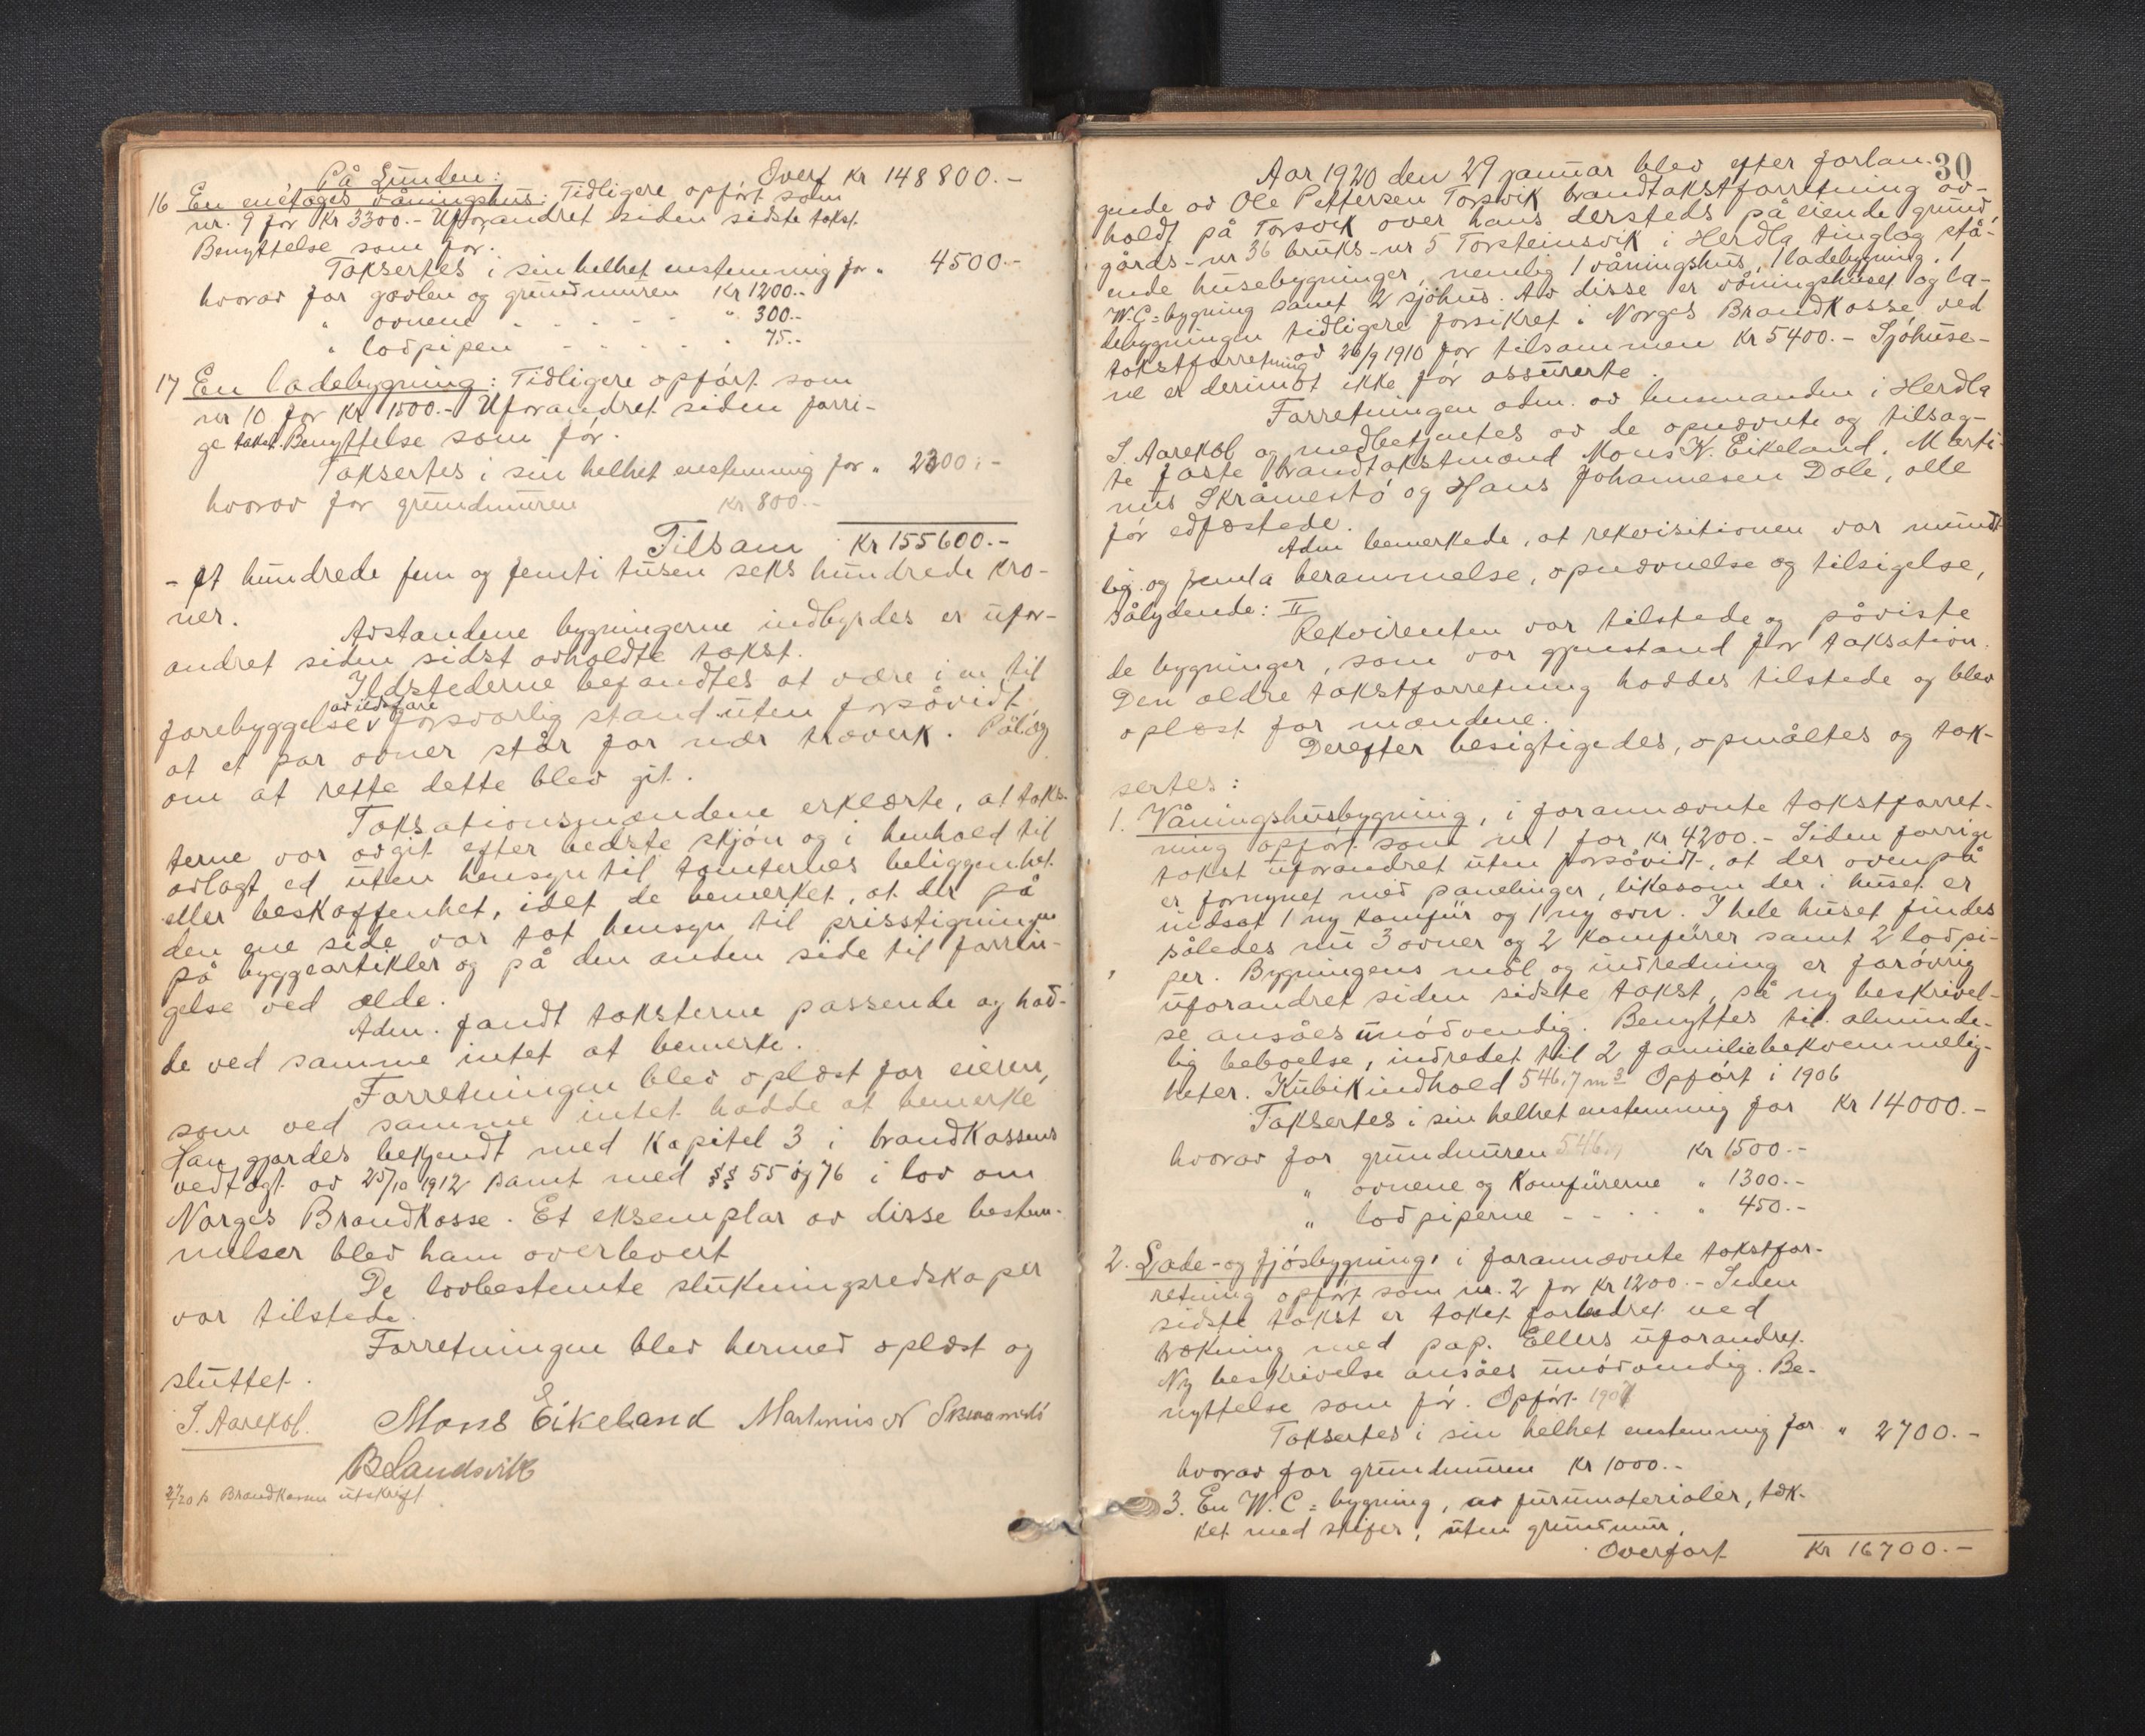 På Lunden: Overf Kr 148800.-
16 En énétages våningshus: Tidligere opført som
nr. 9 for Kr 3300.- Uforandret siden sidste takst.
Benyttelse som før.
Taksertes i sin helhet enstemmig for " 4500.-
hvorav for gavlen og grundmuren Kr 1200.-
" ovnene - - - - - " 300.-
" lodpipen - - - - - " 75.-
17 En ladebygning: Tidligere opført som
nr 10 for Kr 1500.- Uforandret siden forri-
ge takst. Benyttelse som før.
Taksertes i sin helhet enstemmig for " 2300.-
hvorav for grundmuren Kr 800.-
Tilsam Kr 155600.-
- Et hundrede fem og femti tusen seks hundrede kro-
ner.
Avstandene bygningerne indbyrdes er ufor-
andret siden sidst avholdte takst.
Ildstederne befandtes at være i en til
forebyggelse av ildsfare forsvarlig stand uten forsåvidt,
at et par ovner står for nær træverk. Pålæg
om at rette dette blev git.
Taksationsmændene erklærte, at taks-
terne var avgit efter bedste skjøn og i henhold til
avlagt ed uten hensyn til tomternes beliggenhet
eller beskaffenhet, idet de bemerket, at der på
den ene side var tat hensyn til prisstigningen
på byggeartikler og på den anden side til forrin-
gelse ved ælde.
Adm. fandt taksterne passende og had-
de ved samme intet at bemerke.
Forretningen blev oplæst for eieren,
som ved samme intet hadde at bemerke
Han gjordes bekjendt med Kapitel 3 i brandkassens
vedtægt. av 25/10 1912 samt med §§ 55 og 76 i lov om
Norges Brandkasse. Et eksemplar av disse bestem-
melser blev ham overlevert
De lovbestemte slukningsredskaper
var tilstede.
Forretningen blev hermed oplæst og
sluttet.
S. Aarekol. Mons Eikeland Martinus N Skraamestø
B Landsvik
Brandkassen utskrift
30
Aar 1920 den 29 januar blev efter forlan-
gende av Ole Pettersen Torsvik brandtakstforretning av-
holdt på Torsvik over hans dersteds på eiende grund,
gårds-nr 36 bruks-nr 5 Torsteinsvik i Herdla tinglag stå-
ende husebygninger, nemlig 1 våningshus, 1 ladebygning, 1
W.C=bygning samt 2 sjøhus. Av disse er våningshuset og la-
debygningen tidligere forsikret i Norges Brandkasse ved
takstforretning av 26/9 1910 for tilsammen Kr 5400.- Sjøhuse-
ne er derimot ikke før assurerte.
Forretningen adm. av lensmanden i Herdla
S. Aarekol og medbetjentes av de opnævnte og tilsag-
te faste brandtakstmænd Mons N. Eikeland, Marti-
nus Skråmestø og Hans Johannesen Dale, alle
før edfæstede.
Adm bemerkede, at rekvisitionen var mundt-
lig og fremla berammelse, opnævnelse og tilsigelse,
sålydende: II
Rekvirenten var tilstede og påviste
de bygninger, som var gjenstand for taksation.
Den ældre takstforretning haddes tilstede og blev
oplæst for mændene.
Derefter besigtigedes, opmåltes og tak-
sertes:
1. Våningshusbygning, i forannævnte takstforret-
ning opført som nr 1 for Kr 4200.- Siden forrige
takst uforandret uten forsåvidt, at der ovenpå
er fornyet med panelinger, likesom der i huset er
indsat 1 ny komfür og 1 ny ovn. I hele huset findes
således nu 3 ovner og 2 komfürer samt 2 lodpi-
per. Bygningens mål og indredning er forøvrig
uforandret siden sidste takst, så ny beskrivel-
se ansåes unødvendig. Benyttes til alminde-
lig beboelse, indredet til 2 familiebekvemmelig-
heter. Kubikindhold 546,7 m3 Opført i 1906
Taksertes i sin helhet enstemmig for Kr 14000.-
hvorav for grundmuren 546,7 Kr 1500.-
" ovnene og Komfürerne " 1300.-
" lodpiperne - - - - " 450.-
2. Lade- og fjøsbygning, i forannævnte takstfor-
retning opført som nr. 2 for Kr 1200.- Siden
sidste takst er taket forbedret ved
tækning med pap. Ellers uforandret.
Ny beskrivelse ansåes unødvendig. Be-
nyttelse som før. Opført 1907
Taksertes i sin helhet enstemmig for " 2700.-
hvorav for grundmuren Kr 1000.-
3. En W.C=bygning, av furumaterialer, tæk-
ket med skifer, uten grundmur.
Overført Kr 16700.-